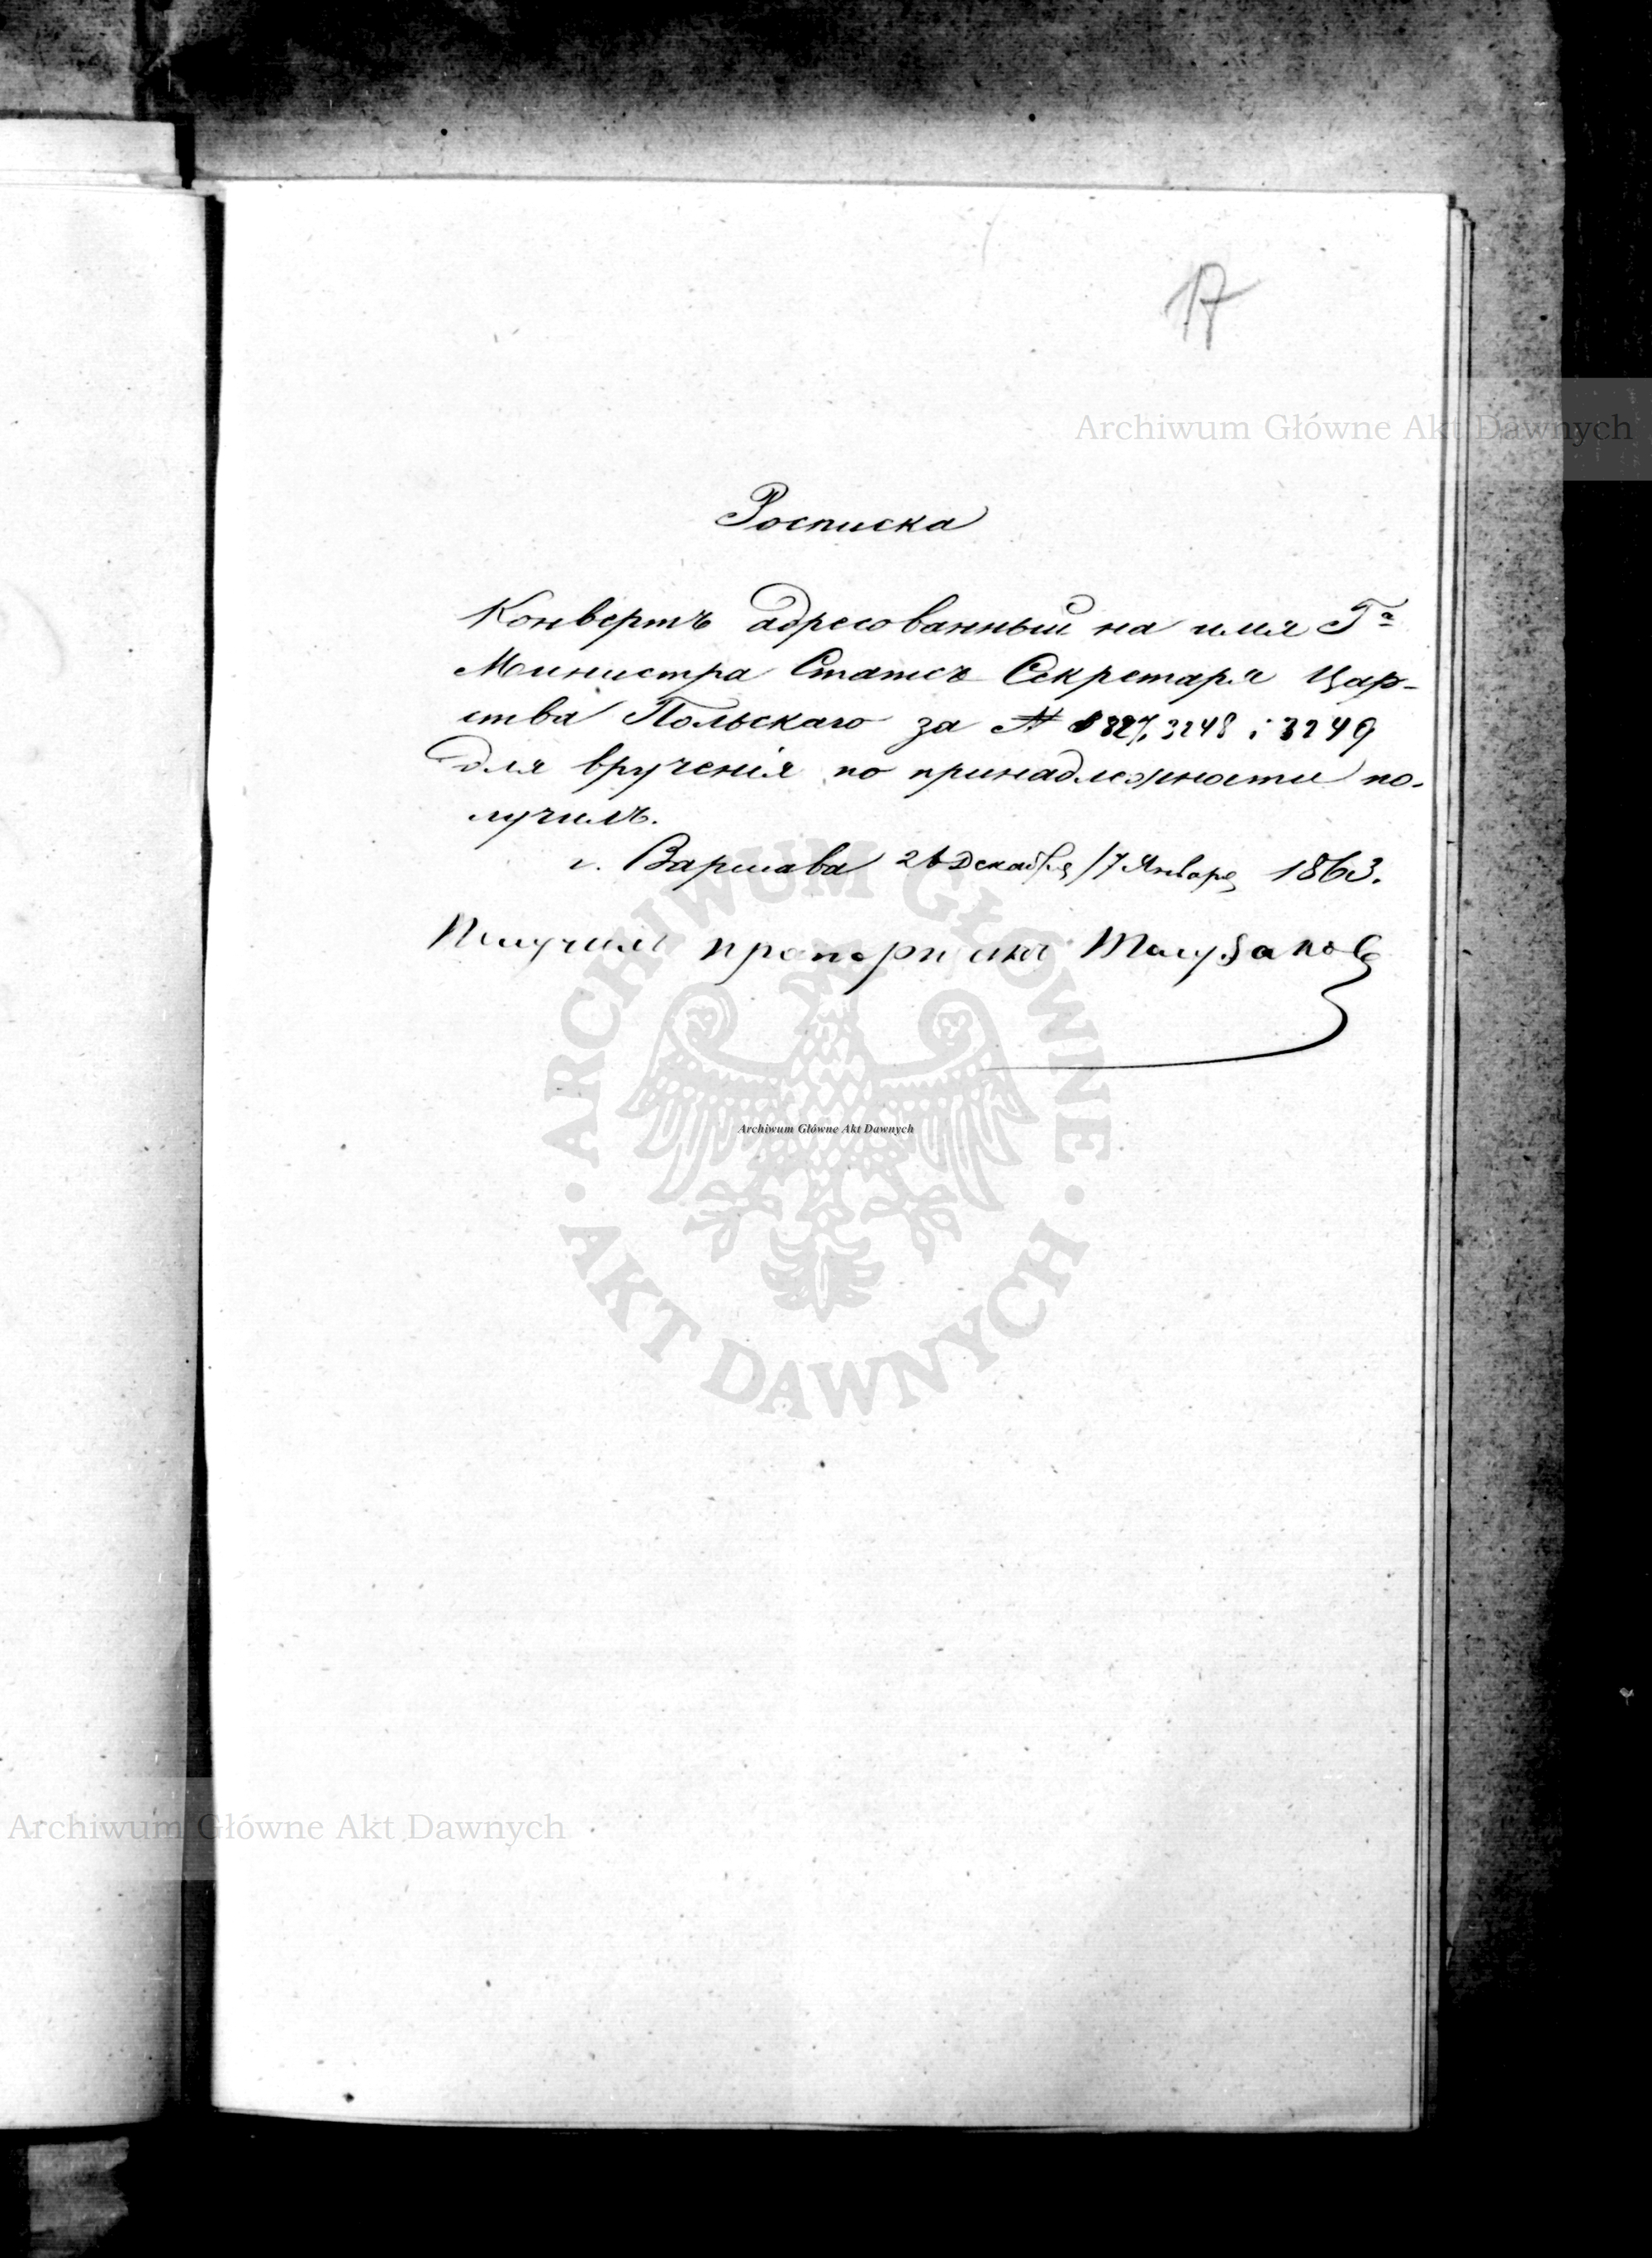 17
Archiwum Główne Akt Dawnych
Росписка
Конвертъ адресованный на имя Га
Министра Статсъ Секретаря Цар-
ства Польскаго за № 3248 i 3249
для врученія по принадлежности по-
лучилъ.
г. Варшава 26 Декабря / 7 Января 1863.
Получилъ прапорщикъ
ARCHIWUM GŁÓWNE
Archiwum Główne Akt Dawnych
AKT DAWNYCH
Archiwum Główne Akt Dawnych